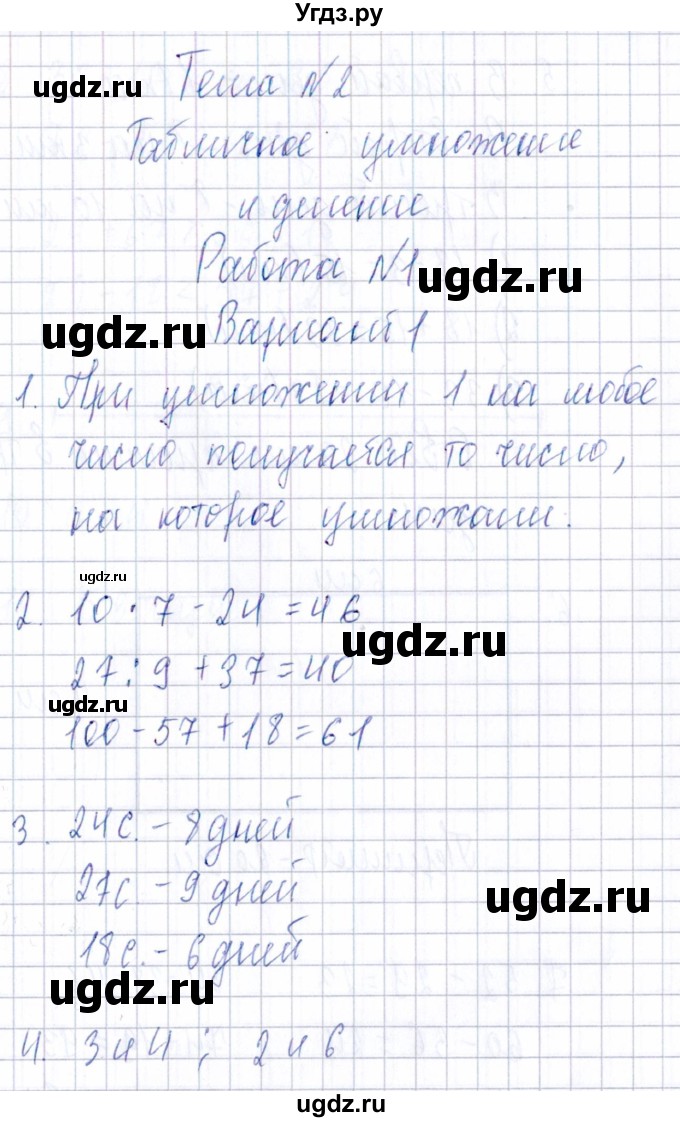 Угдз.ру
Тема №2
ugdz.ru
Табличное умножение
и деление
Работа №1
ugdz.ru
Вариант 1
ugdz.ru
1. При умножении 1 на любое
число получается то число,
на которое умножали.
ugdz.ru
2. 10 · 7 - 24 = 46
ugdz.ru
27 : 9 + 37 = 40
ugdz.ru
100 - 57 + 18 = 61
3. 24с. - 8 дней
27с. - 9 дней
ugdz.ru
18с. - 6 дней
ugdz.ru
4. 3 и 4 ; 2 и 6
ugdz.ru